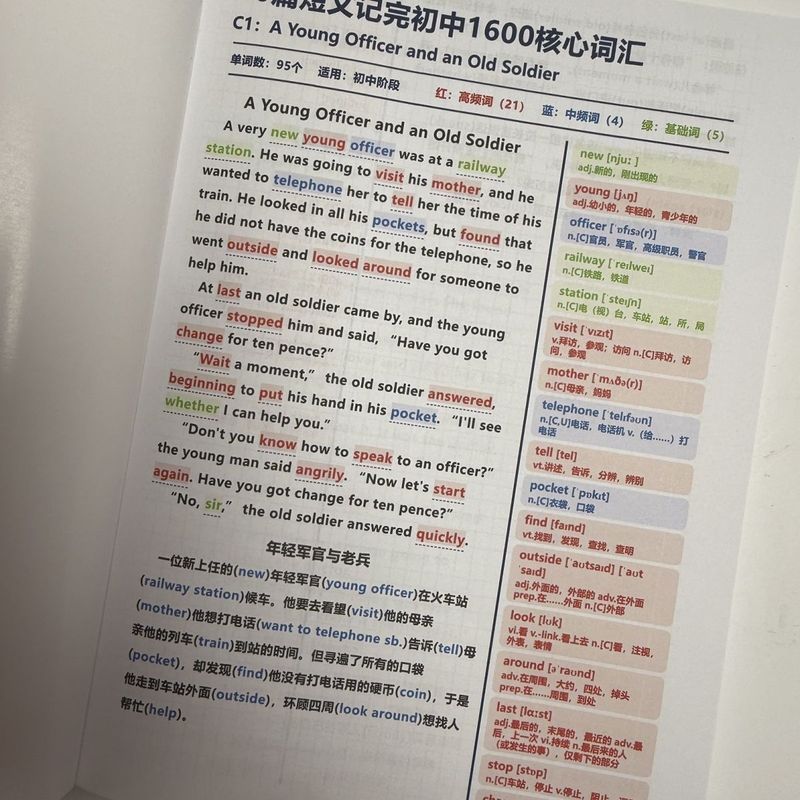 篇短文记完初中1600核心词汇
C1: A Young Officer and an Old Soldier
单词数：95个 适用：初中阶段 红：高频词（21） 蓝：中频词（4） 绿：基础词（5）
A Young Officer and an Old Soldier
A very new young officer was at a railway
station. He was going to visit his mother, and he
wanted to telephone her to tell her the time of his
train. He looked in all his pockets, but found that
he did not have the coins for the telephone, so he
went outside and looked around for someone to
help him.
At last an old soldier came by, and the young
officer stopped him and said, “Have you got
change for ten pence?”
“Wait a moment,” the old soldier answered,
beginning to put his hand in his pocket. “I'll see
whether I can help you.”
“Don't you know how to speak to an officer?”
the young man said angrily. “Now let's start
again. Have you got change for ten pence?”
“No, sir,” the old soldier answered quickly.
年轻军官与老兵
一位新上任的(new)年轻军官(young officer)在火车站
(railway station)候车。他要去看望(visit)他的母亲
(mother)他想打电话(want to telephone sb.)告诉(tell)母
亲他的列车(train)到站的时间。但寻遍了所有的口袋
(pocket)，却发现(find)他没有打电话用的硬币(coin)，于是
他走到车站外面(outside)，环顾四周(look around)想找人
帮忙(help)。
new [njuː]
adj.新的，刚出现的
young [jʌŋ]
adj.幼小的，年轻的，青少年的
officer [ˈɒfɪsə(r)]
n.[C]官员，军官，高级职员，警官
railway [ˈreɪlweɪ]
n.[C]铁路，铁道
station [ˈsteɪʃn]
n.[C]电（视）台，车站，站，所，局
visit [ˈvɪzɪt]
v.拜访，参观；访问 n.[C]拜访，访
问，参观
mother [ˈmʌðə(r)]
n.[C]母亲，妈妈
telephone [ˈtelɪfəʊn]
n.[C,U]电话，电话机 v.（给……）打
电话
tell [tel]
vt.讲述，告诉，分辨，辨别
pocket [ˈpɒkɪt]
n.[C]衣袋，口袋
find [faɪnd]
vt.找到，发现，查找，查明
outside [ˈaʊtsaɪd] [ˈaʊt
ˈsaɪd]
adj.外面的，外部的 adv.在外面
prep.在……外面 n.[C]外部
look [lʊk]
vi.看 v.-link.看上去 n.[C]看，注视，
外表，表情
around [əˈraʊnd]
adv.在周围，大约，四处，掉头
prep.在……周围，到处
last [lɑːst]
adj.最后的，末尾的，最近的 adv.最
后，上一次 vi.持续 n.最后来的人
（或发生的事），仅剩下的部分
stop [stɒp]
n.[C]车站，停止 v.停止，阻止